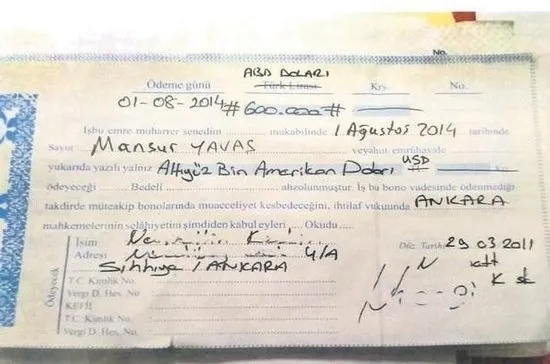 No.
ABD DOLARI
Ödeme günü Türk Lirası Krş. No.
01-08-2014 #600.000#
İşbu emre muharrer senedin mukabilinde 1 Ağustos 2014 tarihinde
Sayın Mansur YAVAŞ veyahut emrühavale
yukarıda yazılı yalnız Altıyüz Bin Amerikan Doları USD
ödeyeceğ Bedeli ahzolunmuştur. İş bu bono vadesinde ödenmediği
takdirde müteakip bonolarında muacceliyet kesbedeceğini, ihtilaf vukuunda ANKARA
mahkemelerinin selâhiyetini şimdiden kabul eyleri Okudu
İsim
Adresi 4/A
Sıhhiye / ANKARA
Düz. Tarihi 29 03 2011
Ödeyecek
T.C. Kimlik No.
Vergi D. Hes. No
KEFİL
T.C. Kimlik No.
Vergi D. Hes. No.